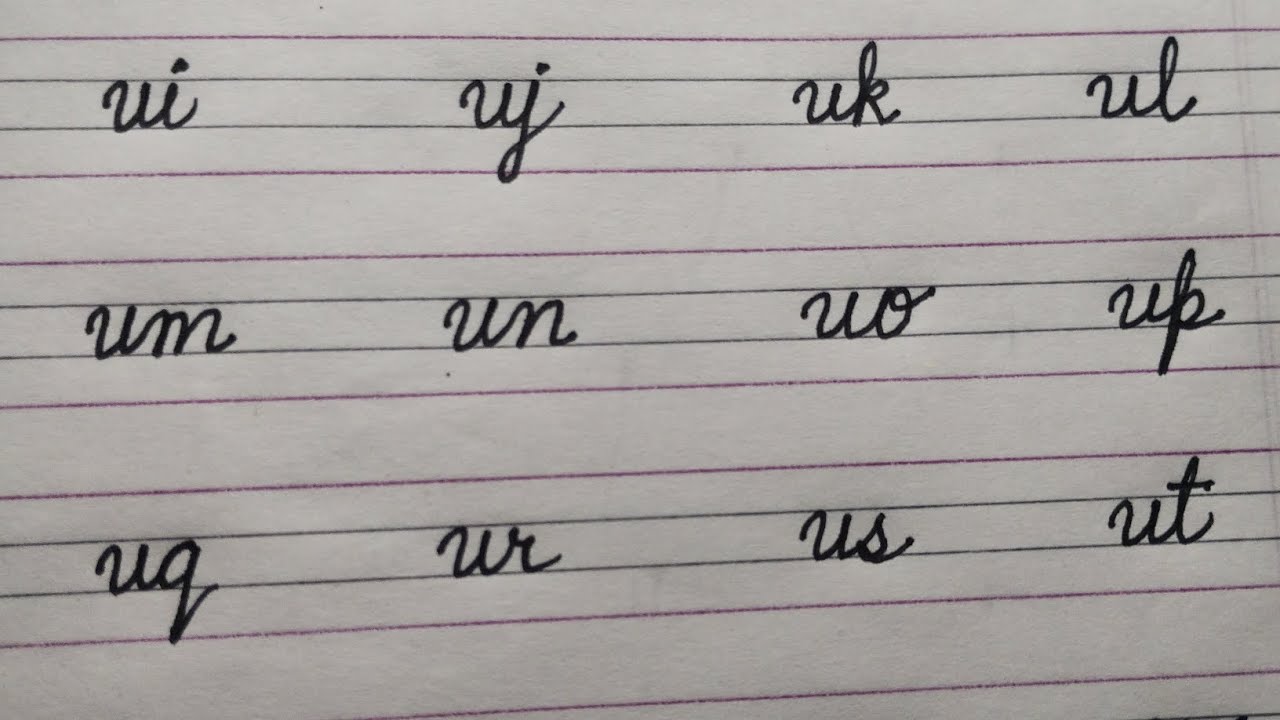 ui uj uk ul
um un uo up
uq ur us ut